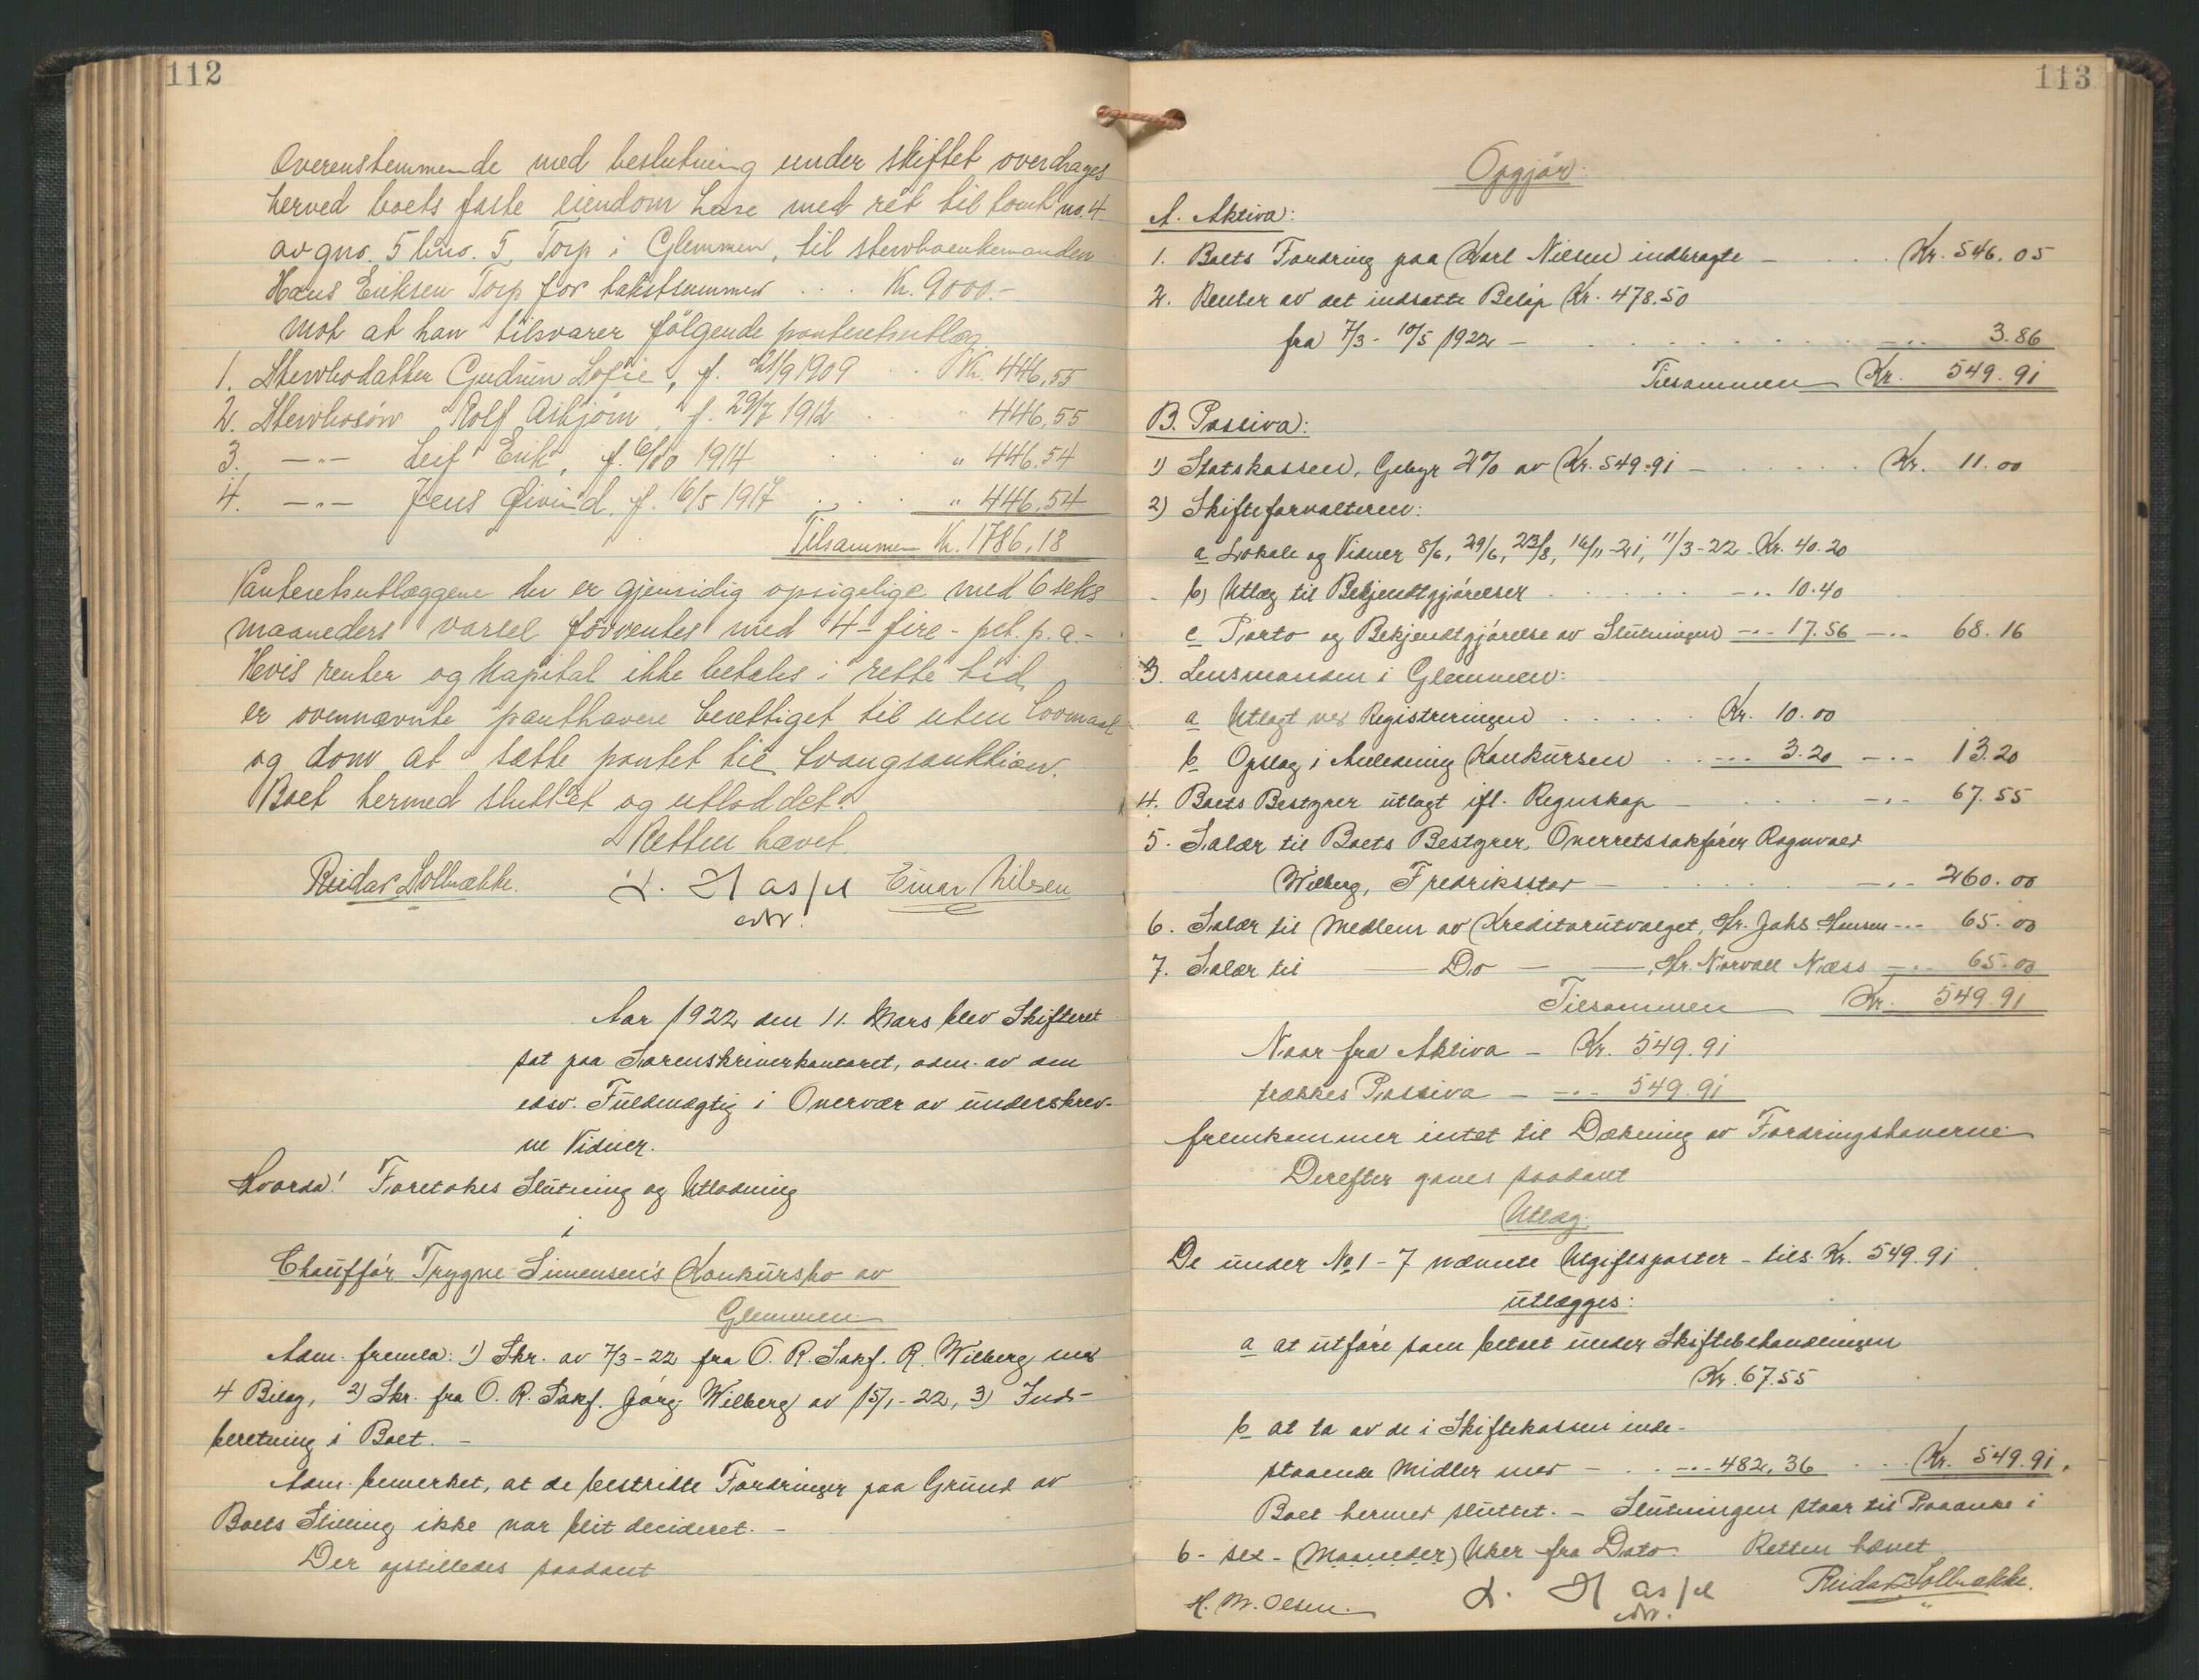 112
Overenstemmende med beslutning under skiftet overdrages
herved boets faste eiendom Huse med ret til tomt no. 4
av gno. 5 bno. 5, Torp i Glemmen, til stervboenkemanden
Hans Eriksen Torp for takstsummen . . . Kr. 9000.-
mot at han tilsvarer følgende panteretsutlæg
1. Stervbodatter Gudrun Sofie, f. 21/9 1909 . . Kr. 446,55
2. Stervbosøn Rolf Asbjørn, f. 29/7 1912 . . " 446,55
3. —"— Leif Erik, f. 6/10 1914 . . . " 446.54
4. —"— Jens Øivind, f. 16/5 1917 . . . " 446,54
Tilsammen Kr. 1786,18
Panteretsutlæggene der er gjensidig opsigelige med 6 seks
maaneders varsel forrentes med 4 - fire - pct. p. a. -
Hvis renter og kapital ikke betales i rette tid,
er ovennævnte panthavere berettiget til uten lovmaal
og dom at sætte pantet til tvangsauktion.
Boet hermed sluttet og utloddet.
Retten hævet.
Reidar Solbrække. L. Hasle Einar Nilsen
edsv.
Aar 1922 den 11. Mars blev Skifteret
sat paa Sorenskriverkontoret, adm. av den
edsv. Fuldmægtig i Overvær av underskrev-
ne Vidner.
Hvorda! Foretokes Slutning og Utlodning
i
Chauffør Trygve Simensen's Konkursbo av
Glemmen.
Adm. fremla: 1) Skr. av 7/3-22 fra O. R. Sakf. R. Wilberg med
4 Bilag, 2) Skr. fra O. R. Sakf. Jørg. Wilberg av 15/1-22, 3) Ind-
beretning i Boet. -
Adm. bemerket, at de bestridte Fordringer paa Grund av
Boets Stilling ikke var blit decideret. -
Der opstilledes saadant
113
Opgjør:
A. Aktiva:
1. Boets Fordring paa Karl Nilsen indbragte - . . . Kr. 546.05
2. Renter av det indsatte Beløp Kr. 478.50
fra 7/3 - 10/5 1922 - . . . -"- 3.86
Tilsammen Kr. 549.91
B. Passiva:
1) Statskassen, Gebyr 2% av Kr. 549.91 - . . . Kr. 11.00
2) Skifteforvalteren:
a Lokale og Vidner 8/6, 29/6, 23/8, 16/11-21, 11/3-22 Kr. 40.20
b) Utlæg til Bekjendtgjørelser . . . -"- 10.40
c Porto og Bekjendtgjørelse av Slutningen -"- 17.56 -"- 68.16
3. Lensmanden i Glemmen:
a Utlagt ved Registreringen . . . Kr. 10.00
b Opslag i Anledning Konkursen . . -"- 3.20 -"- 13.20
4. Boets Bestyrer utlagt ifl. Regnskap - . . . -"- 67.55
5. Salær til Boets Bestyrer, Overretssakfører Ragnvald
Wilberg, Fredriksstad - . . . -"- 260.00
6. Salær til Medlem av Kreditorutvalget, Hr. Johs Hansen -"- 65.00
7. Salær til — Do — — , Hr. Norvall Næss -"- 65.00
Tilsammen Kr. 549.91
Naar fra Aktiva - Kr. 549.91
trækkes Passiva - -"- 549.91
fremkommer intet til Dækning av Fordringshaverne
Derefter gaves saadant
Utlæg:
De under No 1 - 7 nævnte Utgiftsposter - tils. Kr. 549.91
utlægges:
a at utføre som betalt under Skiftebehandlingen
Kr. 67.55
b at ta av de i Skiftekassen inde-
staaende Midler med - . . -"- 482,36 . . Kr. 549.91.
Boet hermed sluttet. - Slutningen staar til Paaanke i
6 - sex - (Maaneder) Uker fra Dato. Retten hævet
H. M. Olsen. L. Hasle Reidar Solbrække.
edsv.